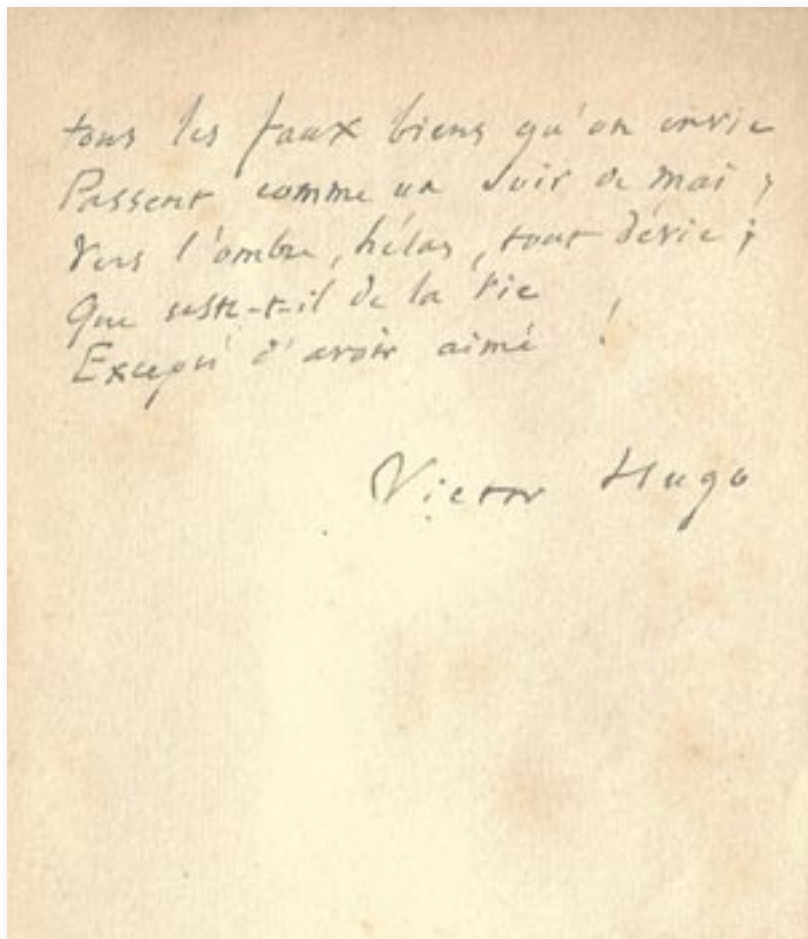 tous les faux biens qu'on envie
Passent comme un soir de mai ;
Vers l'ombre, hélas, tout dévie ;
Que reste-t-il de la vie
Excepté d'avoir aimé !
Victor Hugo